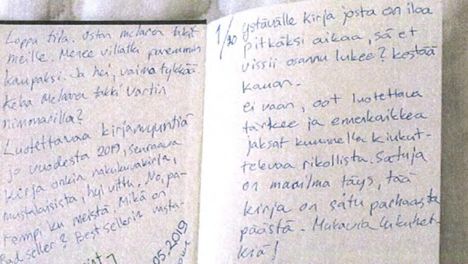 Loppu tila. Ostan mehara takit
meille. Menee villatki paremmin
kaupaksi. Ja hei, vaimo tykkää
keha mehara takki Vartin
nimmarilla?
Luotettavaa kirjamyyntiä
jo vuodesta 2019, seuraava
kirja onkin
mustalaisista, hyi vittu. No, pa-
rempi ku meistä. Mikä on
Badseller? Bestsellerin musta-
05.2019
1/30
ystävälle kirja josta on iloa
pitkäksi aikaa, sä et
vissii osannu lukee? kestää
kauan.
ei vaan, oot luotettava
tärkee ja ennenkaikkea
jaksat kuunnella kiukut-
televaa rikollista. Satuja
on maailma täys, tää
kirja on satu parhaasta
päästä. Mukavia lukuhet-
kiä!